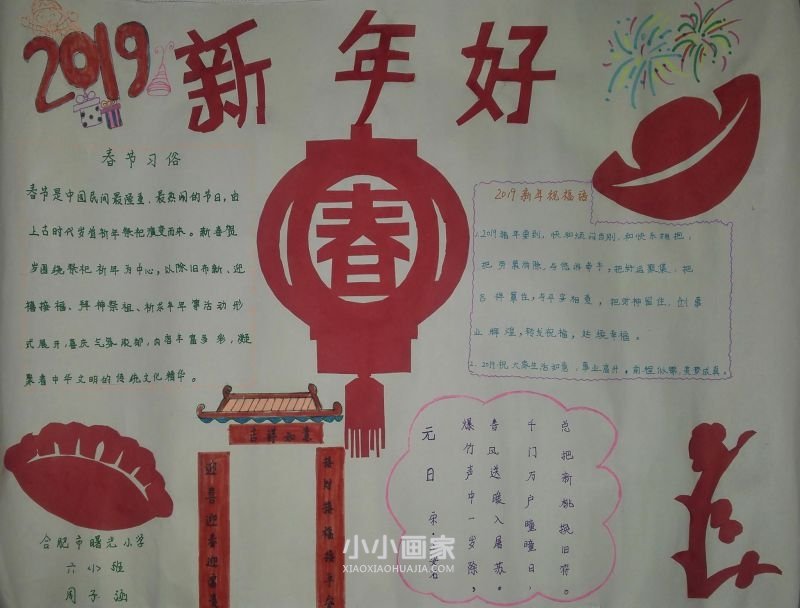 2019
新年好
春
春节习俗
春节是中国民间最隆重、最热闹的节日,由
上古时代岁首祈年祭祀演变而来。新春贺
岁围绕祭祀祈年为中心,以除旧布新、迎
禧接福、拜神祭祖、祈求丰年等活动形
式展开,喜庆气氛浓郁,内容丰富多彩,凝
聚着中华文明的传统文化精华。
2019新年祝福语
1.2019猪年要到,快和烦闷告别,和快乐拥抱,
把劳累消除,与悠游牵手,把好运聚集,把
吉祥冀住,与平安相邀,把财神留住,创事
业辉煌,转发祝福,延续幸福。
2.2019祝大家生活如意,事业高升,前程似锦,美梦成真。
吉祥如意
迎喜迎春迎富贵
接财接福接平安
元日
爆竹声中一岁除,
春风送暖入屠苏。
千门万户曈曈日,
总把新桃换旧符。
合肥市曙光小学
六小班
周子涵
小小画家
XIAOXIAOHUAJIA.COM